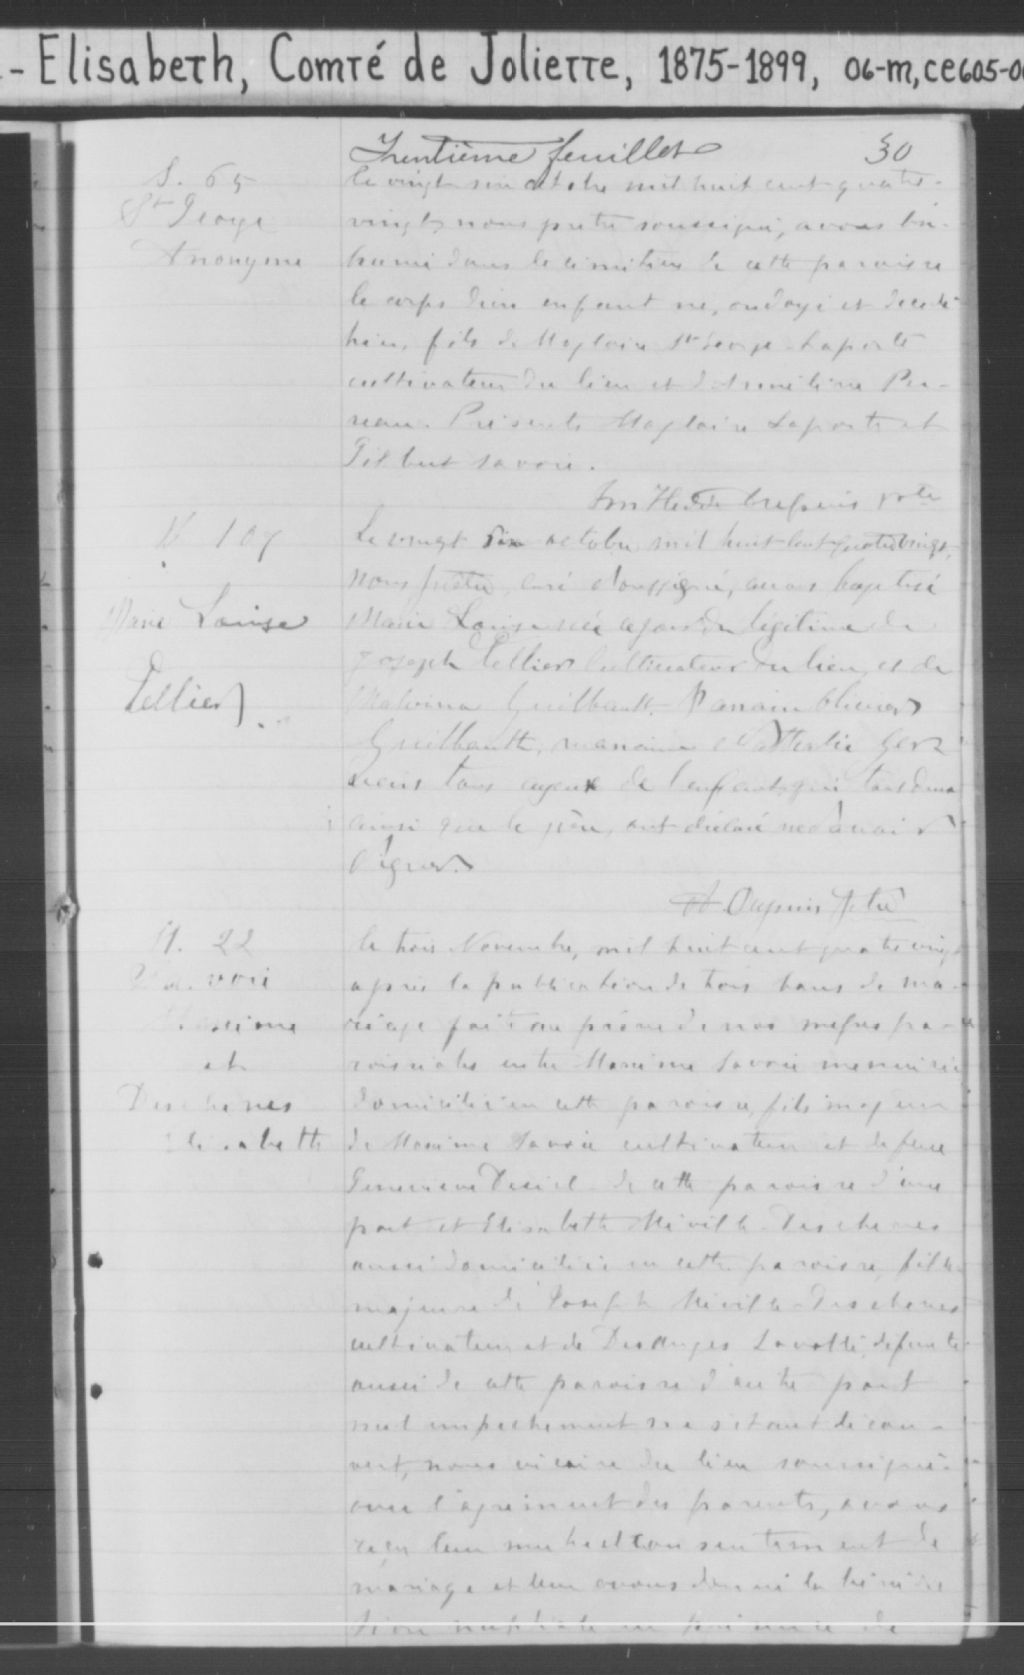 - Elisabeth, Comté de Joliette, 1875-1899, 06-m, ce605-0
Trentième feuillet 30
S. 65
St George
Anonyme
le vingt six octobre mil huit cent quatre-
vingt, nous prêtre soussigné, avons in-
humé dans le cimetière de cette paroisse
le corps d'un enfant né, ondoyé et décédé
hier, fils de Magloire St George Laporte
cultivateur du lieu et d'
Présents Magloire Laporte et
Gilbert Savoie.
Ptre
B 107
Marie Louise
Pellier
Le vingt six octobre mil huit cent quatrevingt,
nous prêtre, curé soussigné, avons baptisé
Marie Louise née légitime de
Joseph Pellier cultivateur du lieu et de
Malvina Guilbault. Parrain Olivier
Guilbault, marraine
tous ayeux de l'enfant, qui tous deux
ainsi que le père, ont déclaré ne savoir
signer.
H. Dupuis Ptre
M. 22
Savoie
Maxime
et
Deschenes
Elisabeth
le trois Novembre, mil huit cent quatre vingt
après la publication de trois bans de ma-
riage faite au prône de nos messes pa-
roissiales entre Maxime Savoie menuisier
domicilié en cette paroisse, fils majeur
de Maxime Savoie cultivateur et de feue
Geneviève Desiel de cette paroisse d'une
part et Elisabeth Miville Deschenes
aussi domiciliée en cette paroisse, fille
majeure de Joseph Miville-Deschenes
cultivateur et de Desanges Lavallé, défunte
aussi de cette paroisse d'autre part
nul empechement ne s'étant décou-
vert, nous vicaire du lieu soussigné
avec l'agrément des parents, avons
reçu leur mutuel consentement de
mariage et leur avons donné la bénédic
tion nuptiale en présence de